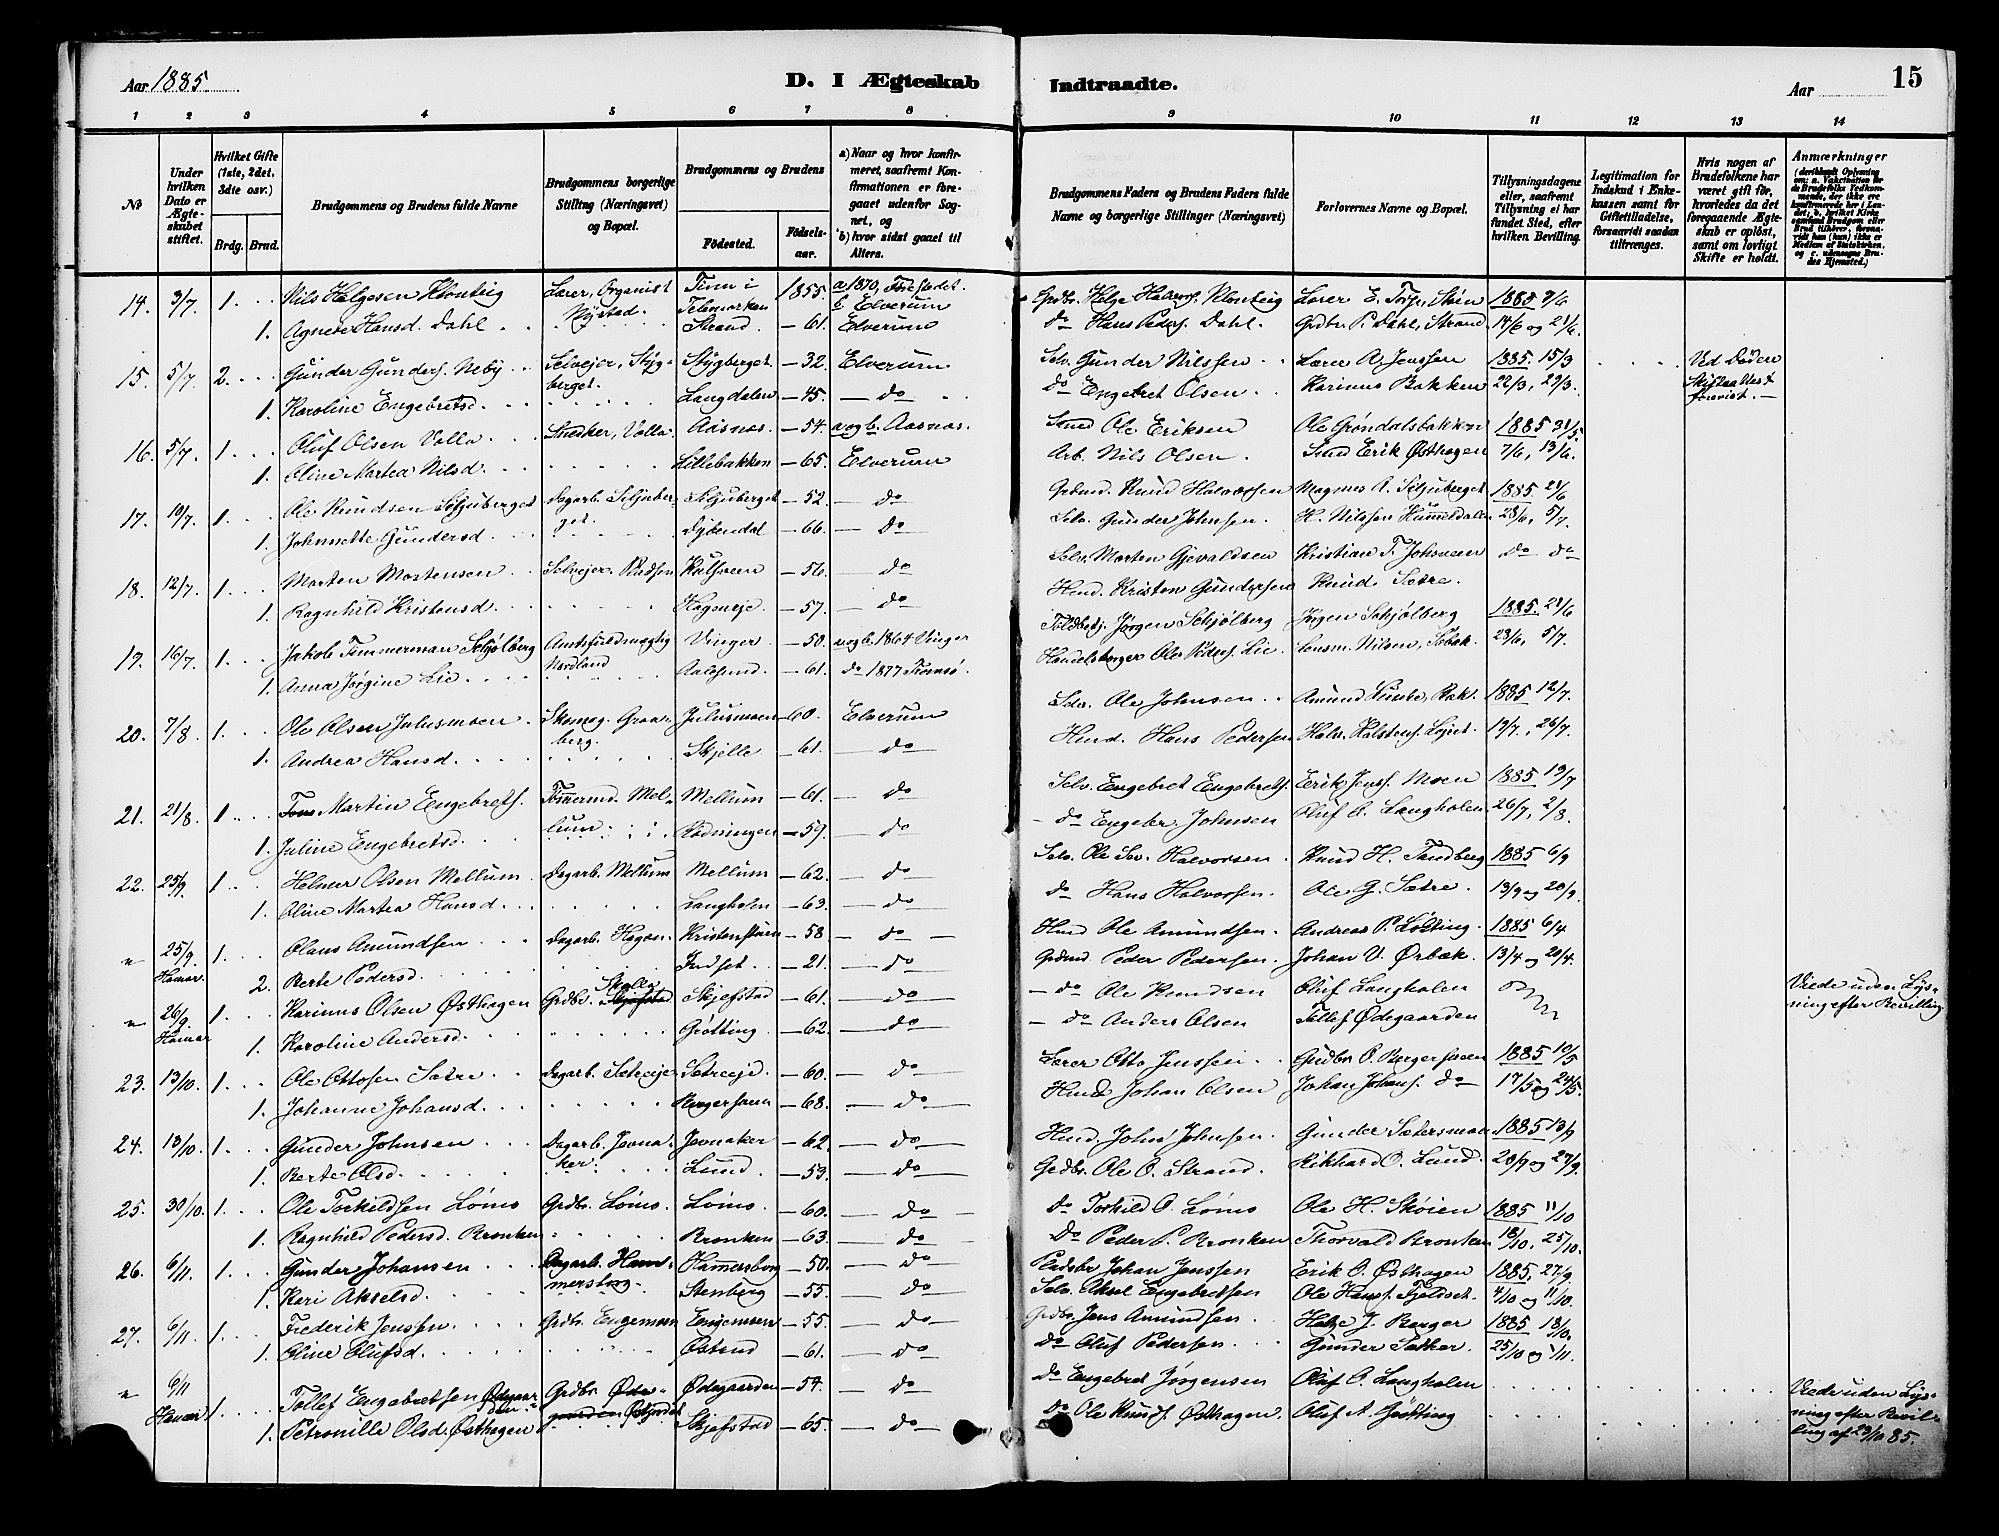 Aar 1885.
D. I Ægteskab
Indtraadte.
Aar
15
1 2 3 4 5 6 7 8 9 10 11 12 13 14
№
Under hvilken Dato er Ægteskabet stiftet.
Hvilket Gifte (1ste, 2det, 3die osv.)
Brdg. Brud.
Brudgommens og Brudens fulde Navne
Brudgommens borgerlige Stilling (Næringsvei) og Bopæl.
Brudgommens og Brudens
Fødested.
Fødselsaar.
a) Naar og hvor konfirmeret, saafremt Konfirmationen er foregaaet udenfor Sognet, og
b) hvor sidst gaaet til Alters.
Brudgommens Faders og Brudens Faders fulde Navne og borgerlige Stillinger (Næringsvei)
Forlovernes Navne og Bopæl.
Tillysningsdagene eller, saafremt Tillysning ei har fundet Sted, efter hvilken Bevilling.
Legitimation for Indskud i Enkekassen samt for Giftetilladelse, forsaavidt saadan tiltrænges.
Hvis nogen af Brudefolkene har været gift før, hvorledes da det foregaaende Ægteskab er opløst, samt om lovligt Skifte er holdt.
Anmærkninger
14. 3/7 1. Nils Helgesen Klonteig Lærer, Organist Tinn i 1855. a 1870, Fødestedet. Grdbr. Helge Halvors. Klonteig Lærer E. Torp, 1885 7/6
Nystad. Telemarken b. Elverum
1. Agnete Hansd. Dahl Strand — 61. Elverum do Hans Peders. Dahl. Grdbr. P. Dahl, Strand 14/6 og 21/6.
15. 5/7 2. Gunder Gunders. Neby Selveier, Stygberget. Stygberget — 32. Elverum Selv. Gunder Nilssen Lærer A. Jenssen 1885. 15/3 Ved Døden
1. Karoline Engebretsd. Langdalen — 45. — do do Engebret Olsen Karinus Bakken 22/3, 29/3. Skifteattest forevist. —
16. 5/7 1. Oluf Olsen Volla Snekker, Volla. Aasnæs. — 54. a og b. Aasnæs. Smed Ole Eriksen Ole Grøndalsbakken 1885 31/5.
1. Oline Martea Nilsd. Lillebakken — 65. Elverum Arb. Nils Olsen Smed Erik Østhagen 7/6, 13/6.
17. 19/7. 1. Ole Knudsen Seljuberget Dagarb. Seljuberget. Seljuberget — 52. — do Knud Halvorsen Magnus A. Seljuberget 1885. 21/6
1. Johnette Gundersd. Dybendal — 66. — do Selv. Gunder Johnsen. H. Nilssen Hummeldalen 28/6, 5/7.
18. 12/7. 1. Morten Mortensen Selveier. Kulsveen — 56. — do Selv. Morten Gjevaldsen Kristian T. Johsveen do do
1. Ragnhild Kristensd. Hageneje. — 57. — do Hmd. Kristen Gundersen Knud Sætre.
19. 16/7. 1. Jakob Timmerman Schjølberg Amtsfuldmægtig Nordland Vinger — 50. a og b. 1864 Vinger Jørgen Schjølberg Jørgen Schjølberg 1885. 21/6
1. Anna Jørgine Lie Aalesund. — 61. do 1877 Tromsø. Handelsborger Ole Peders. Lie Lensm. Nilsen, 28/6, 5/7.
20. 7/8. 1. Ole Olsen Julusmoen Skomag. Graaberg. Julusmoen — 60. Elverum Selv. Ole Johnsen 1885 12/7.
1. Andrea Hansd. Skjelle — 61. — do Hmd. Hans Pedersen Halv. Halstens. 19/7, 26/7.
21. 21/8. 1. Martin Engebrets. Tømrmd. Mellum. Mellum — 61. — do Selv. Engebret Engebrets. Erik Jens. Moen 1885 19/7
1. Juline Engebretsd. Rødningen — 59. — do do Engebr. Johnsen Oluf O. Langholen 26/7, 2/8.
22. 25/9. 1. Helmer Olsen Mellum Dagarb. Mellum Mellum — 62. — do Selv. Ole Sev. Halvorsen Knud H. Tandberg 1885 6/9
1. Oline Martea Hansd. Langholen — 63. — do do Hans Halvorsen. Ole G. Sætre. 13/9 og 20/9.
" 25/9. Hamar 1. Olaus Amundsen Dagarb. Hagen. — 58. — do Hmd Ole Amundsen. Andreas P. Løsting. 1885 6/4
2. Berte Pedersd. Indset. — 21. — do Peder Pedersen. Johan V. Ørbæk. 13/4 og 20/4.
" 26/9 Hamar 1. Karinus Olsen Østhagen Grdbr. Skjefstad — 61. — do — do Ole Knudsen Oluf Langholen Viede uden Lysning efter Bevilling
1. Karoline Andersd. Gøtting — 62. — do — do Anders Olsen Tollef Ødegaarden
23. 13/10. 1. Ole Ottosen Sætre Dagarb. Sætreeje. Sætreeje. — 60. — do Lærer Otto Jenssen Grdbr. O. Bergersveen 1885 10/5
1. Johanne Johansd. Bergersveen — 68. — do Hmd Johan Olsen Johan Johans. do 17/5 og 24/5.
24. 13/10. 1. Gunder Johnsen Dagarb. Jevnaker. Jevnaker — 62. — do Hmd. John Johnsen. Gunder Sætersmoen. 1885 13/9
1. Berte Olsd. Lund — 53. — do Grdbr. Ole O. Strand. Rikhard O. Lund. 20/9 og 27/9.
25. 30/10. 1. Ole Torkildsen Lømo Grdbr. Lømo. Lømo. — 60. — do do Torkild O. Lømo Ole H. Skøien 1885 11/10
1. Ragnhild Pedersd. Bronken Bronken — 63. — do Do Peder P. Bronken Thorvald Bronken 18/10. 25/10.
26. 6/11. 1. Gunder Johansen Dagarb. Hammersborg. Hamersborg — 50. — do Pladsbr Johan Jenssen Erik O. Østhagen 1885. 27/9.
1. Kari Akselsd. Stenberg — 55. — do Selv. Aksel Engebretsen Ole Hans. 4/10 og 11/10.
27. 6/11. 1. Frederik Jenssen Grdbr. Engemoen Engemoen — 55. — do Grdbr. Jens Amundsen Helge J. Berger 1885 18/10.
1. Oline Olufsd. Østend — 61. — do do Oluf Pedersen Gunder Sæther. 25/10 og 1/11.
" 6/11 Hamar 1. Tollef Engebretsen Ødegaarden Grdbr. Ødegaarden Ødegaarden — 54. — do do Engebret Jørgensen Oluf O. Langholen Viede uden Lysning efter Bevilling af 29/10 85.
1. Petronille Olsd. Østhagen Skjefstad — 65. — do do Ole Knuds. Østhagen. Oluf A. Gøtting